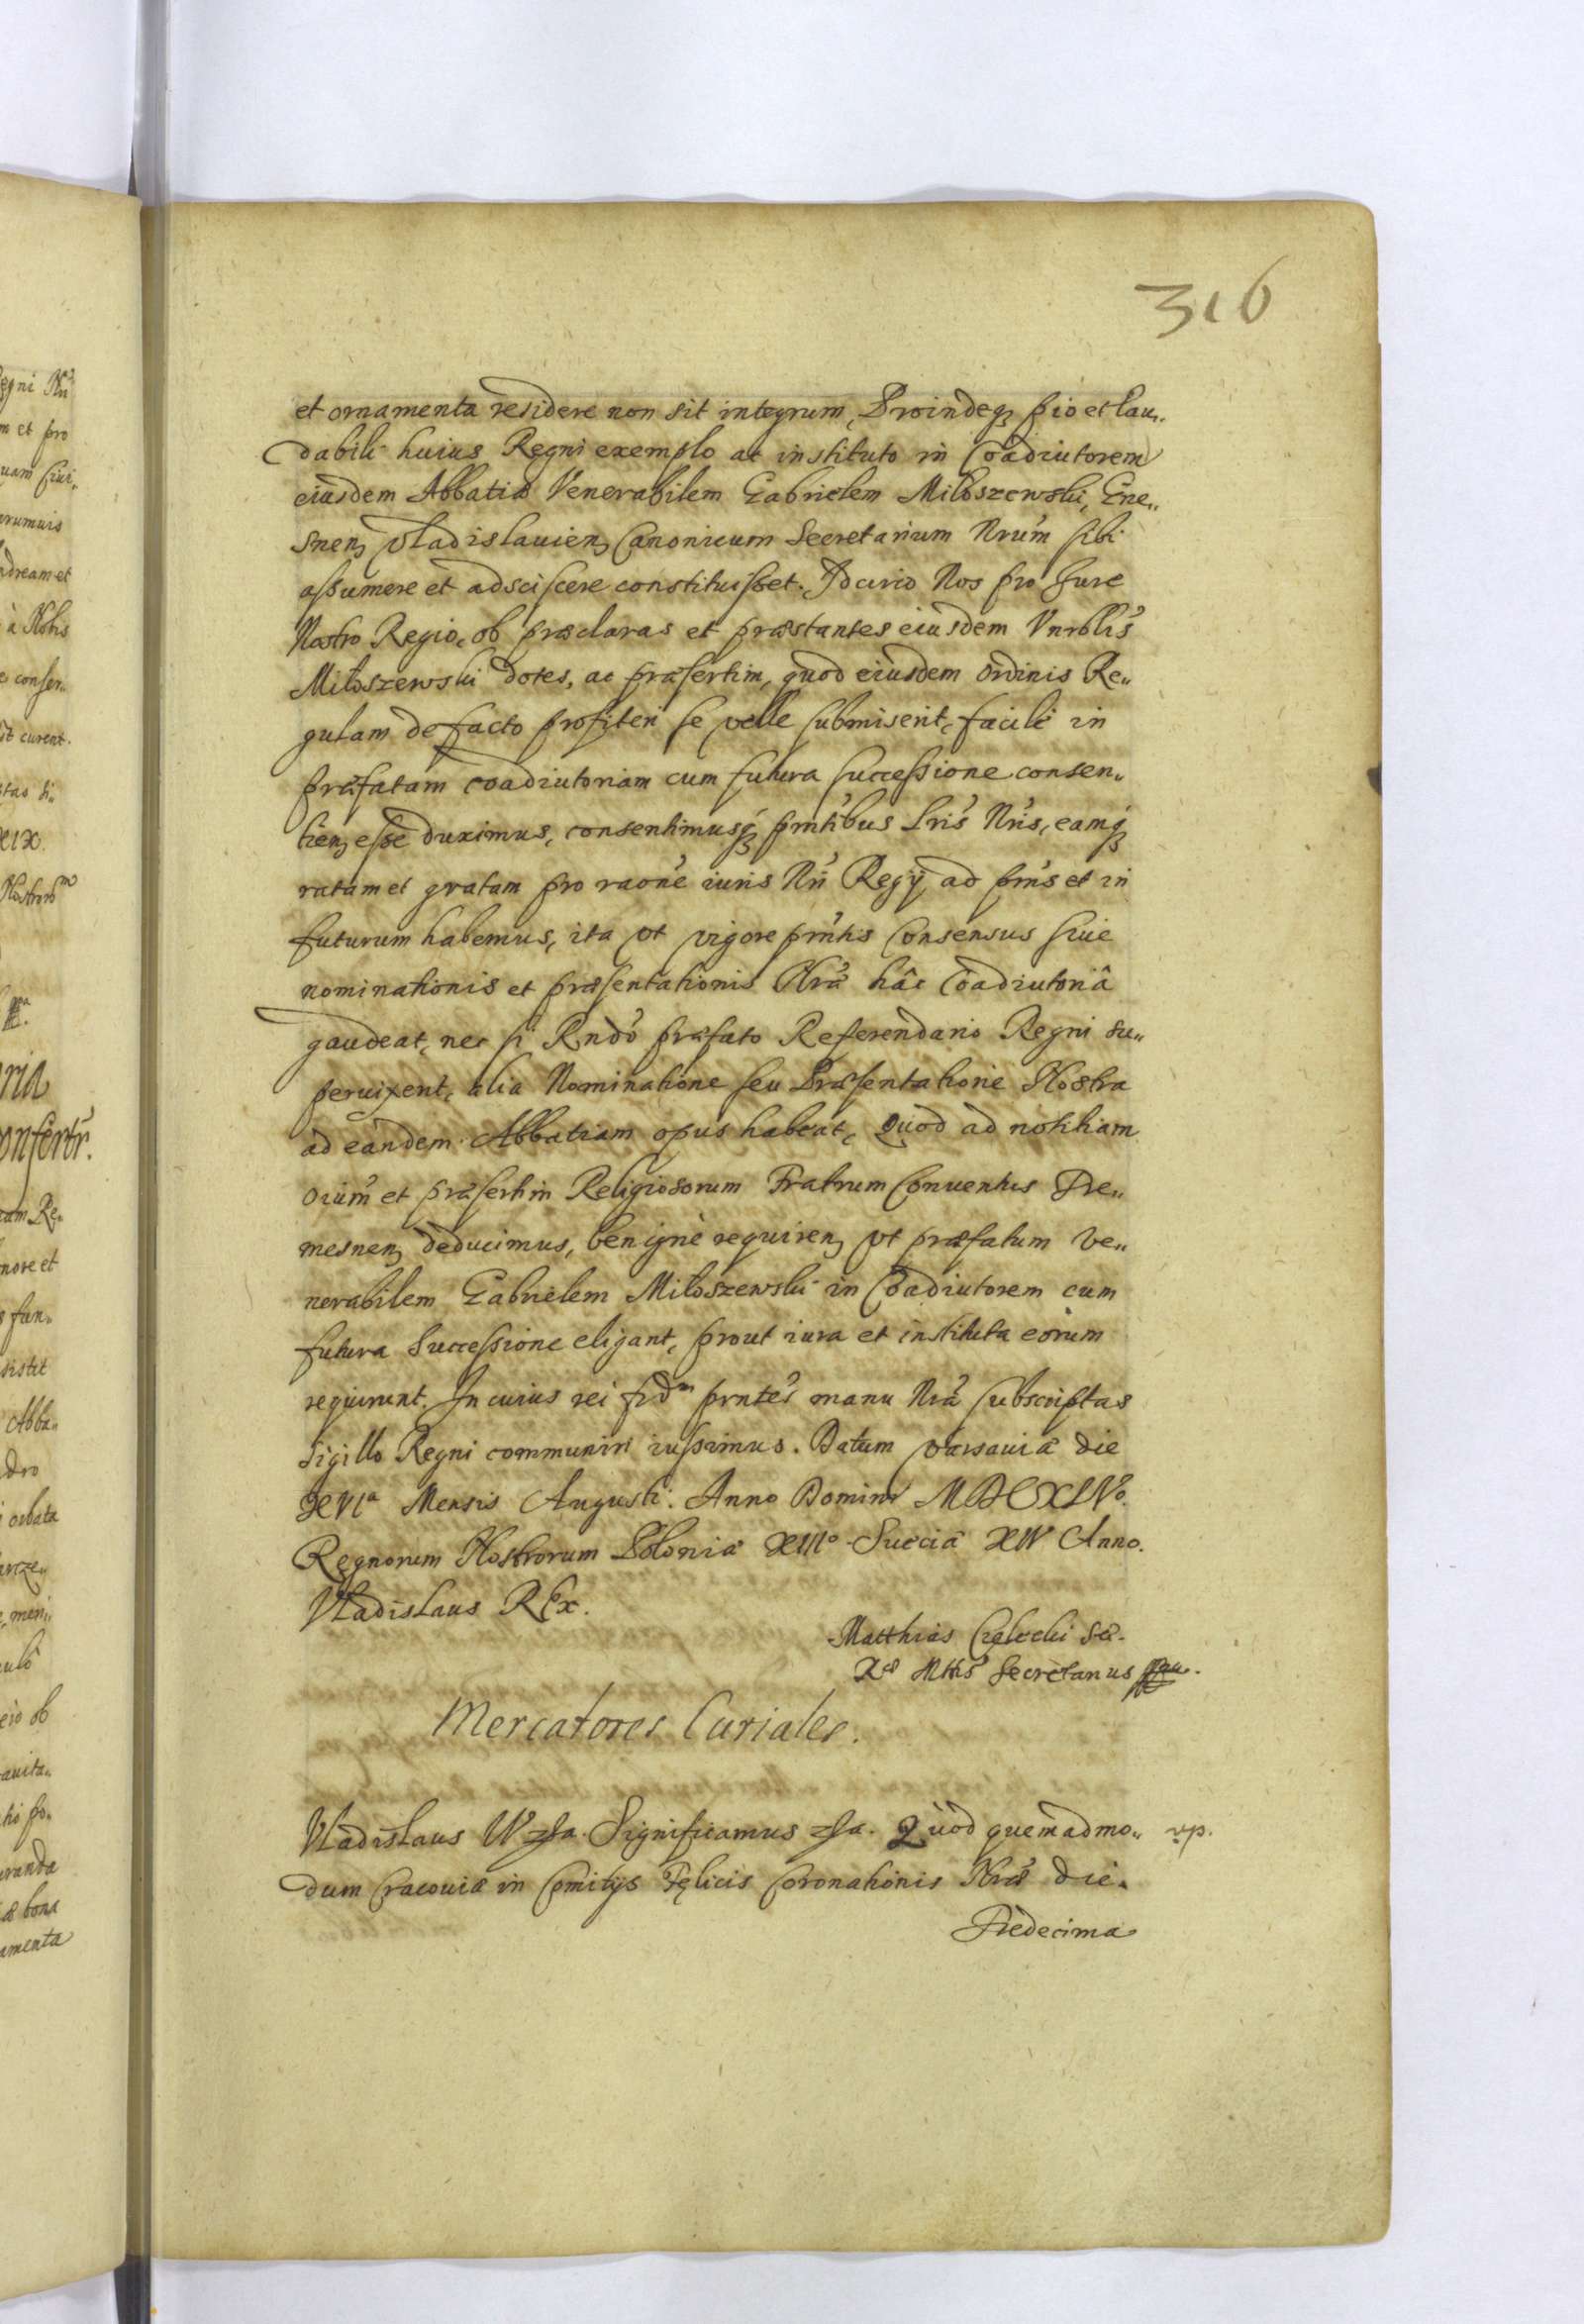 316
et ornamenta residere non sit integrum, Proindeq₃ pio et lau„
dabili huius Regni exemplo ac instituto in Coadiutorem
eiusdem Abbatiæ Venerabilem Gabrielem Miłoszewski, Gne„
snen₃ Vladislauien₃ Canonicum Secretarium Nrum sibi
assumere et adsciscere constituisset. Idcirco Nos pro Iure
Nostro Regio, ob præclaras et præstantes eiusdem Vnrblis
Miłoszewski dotes, ac præsertim, quod eiusdem Ordinis Re„
gulam de facto profiteri se velle submiserit, facile in
præfatam coadiutoriam cum futura successione consen„
tien₃ esse duximus, consentimusq₃ prntibus Lris Nris, eamq₃
ratam et gratam pro raone iuris Nri Regij ad prns et in
futurum habemus, ita vt vigore prntis Consensus siue
nominationis et præsentationis Nræ hâc Coadiutoriâ
gaudeat, nec si Rndo præfato Referendario Regni su„
peruixerit, alia Nominatione seu Præsentatione Nostra
ad eandem Abbatiam opus habeat, Quod ad notitiam
oium et præsertim Religiosorum Fratrum Conuentus Tre„
mesnen₃ deducimus, benignè requiren₃ vt præfatum Ve„
nerabilem Gabrielem Miłoszewski in Coadiutorem cum
futura Successione eligant, prout iura et instituta eorum
requirunt. In cuius rei fidm prntes manu Nra subscriptas
Sigillo Regni communiri iussimus. Datum Varsauiæ die
XVIa Mensis Augusti. Anno Domini MDCXLVo.
Regnorum Nostrorum Poloniæ XIIIo Sueciæ XIV Anno.
Vladislaus REx.
Matthias Sæ.
Ræ Mttis Secretarius
Mercatores Curiales.
Vladislaus IV etca. Significamus etca. Quod quemadmo„
dum Cracouiæ in Comitijs Felicis Coronationis Nræ die
Tredecima